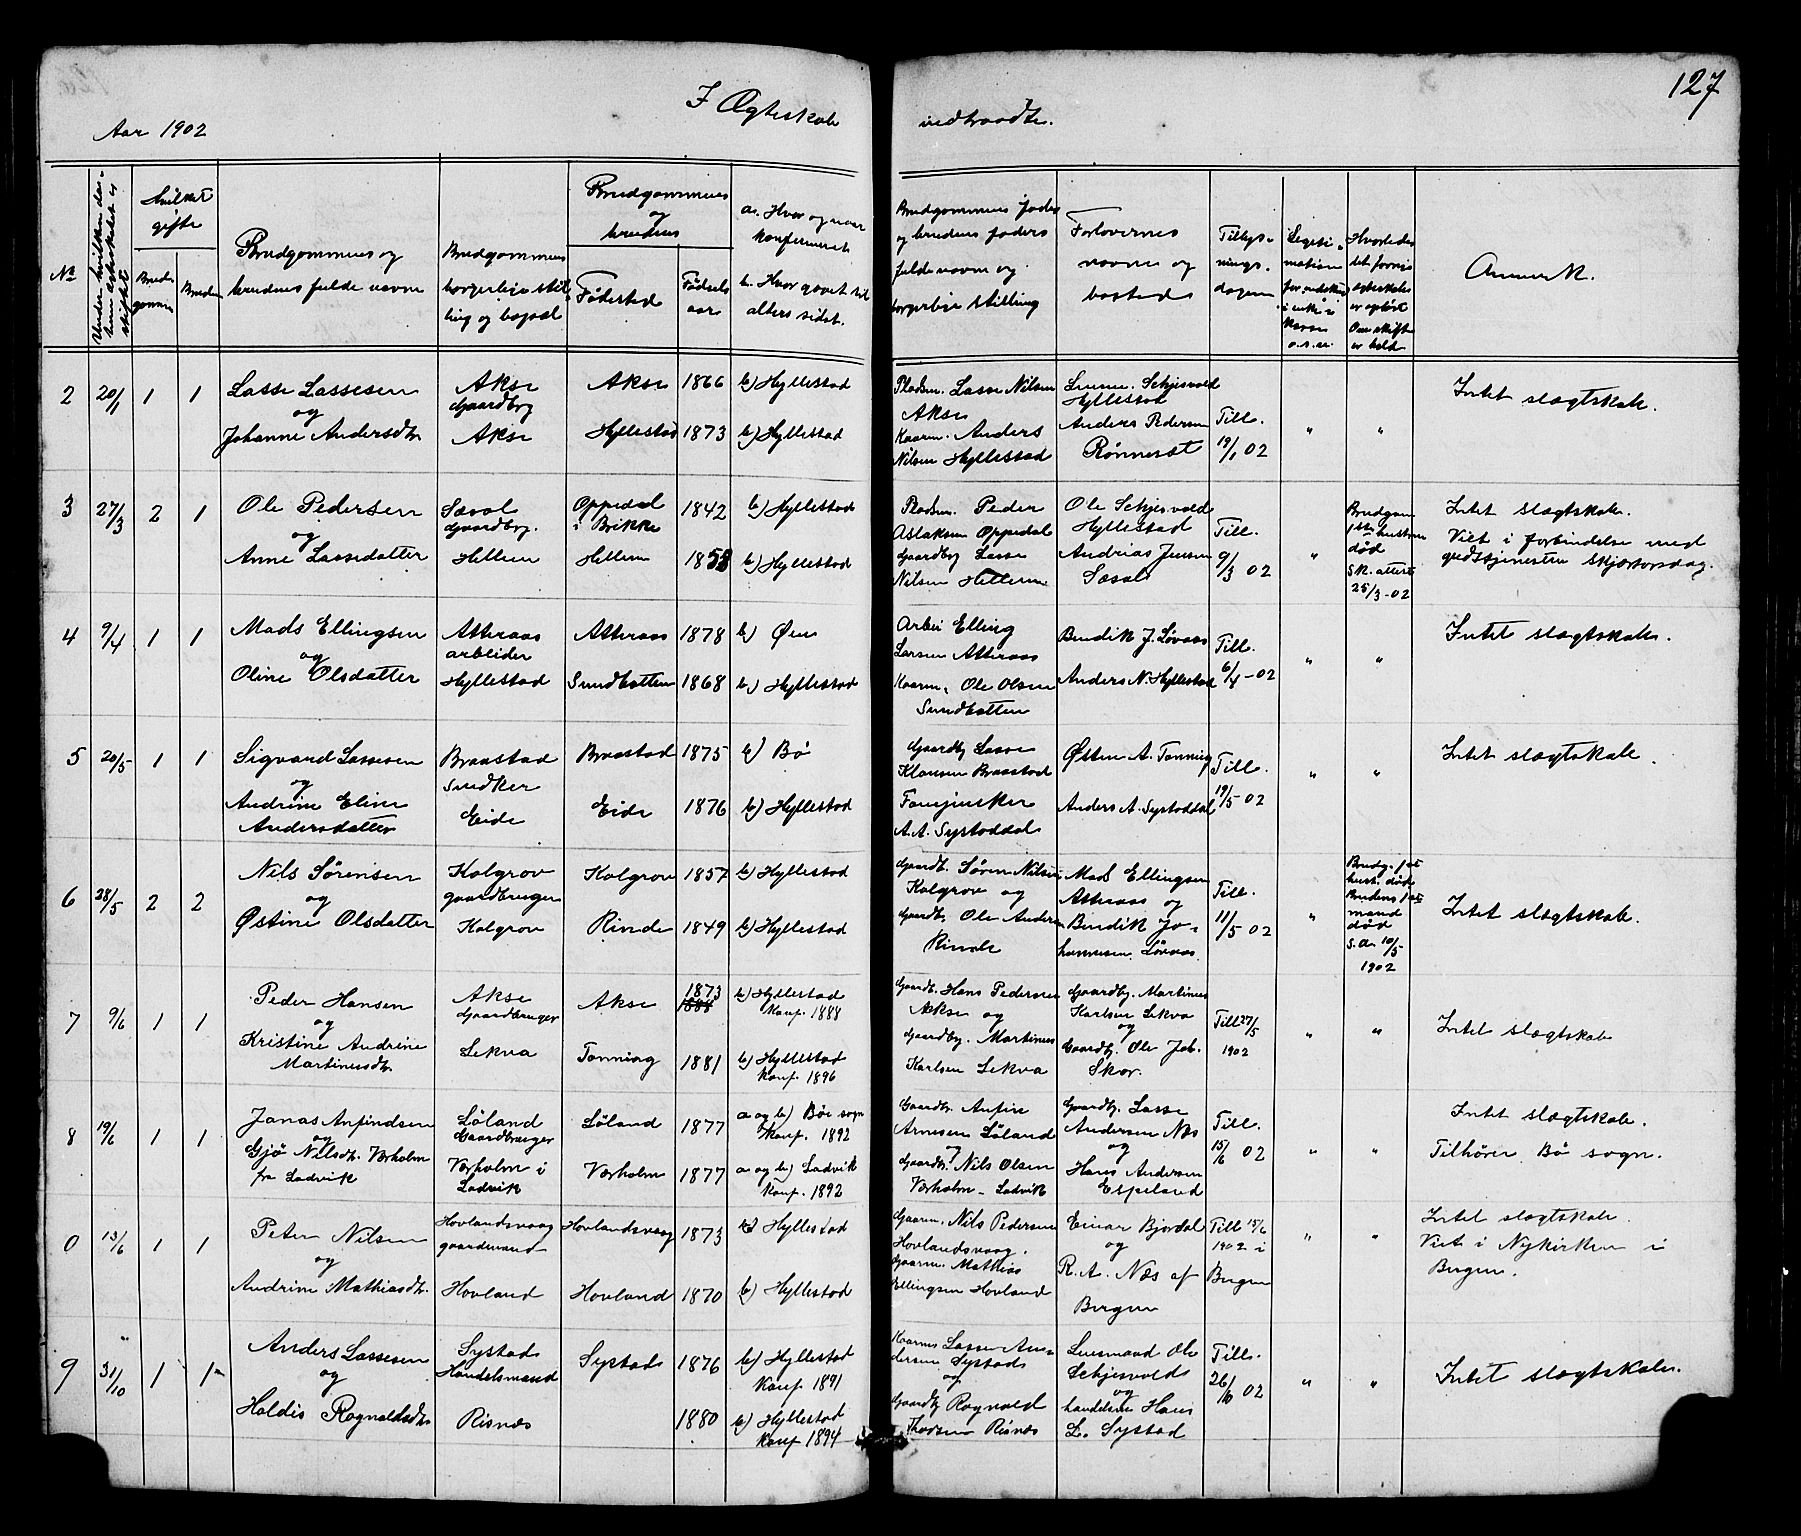 127
I Ægteskab indtraadte.
Aar 1902
No
hvilket gifte
Brudgommen
Bruden
Brudgommens og brudens fulde navne
Brudgommens borgerlige stilling og bopæl
Brudgommens og brudens
Fødested
Fødselsaar
a. Hvor og naar konfirmeret
b. Hvor gaaet til alters sidst.
Brudgommens faders og brudens faders fulde navne og borgerlige stilling
Forlovernes navne og bosteder
Tillysningsdagene
Anmerk.
2 20/1 1 1
Lasse Lassesen Akse Gaardbrg Akse 1866 b) Hyllestad
og
Johanne Andersdtr. Akse Hyllestad 1873 b) Hyllestad
Pladsm. Lasse Nilsen Akse
Kaarm. Anders Nilsen Hyllestad
Lensm. Schjesvold Hyllestad
Anders Pedersen Rønneset
Till. 19/1 02 " "
Intet slægtskab.
3 27/3 2 1
Ole Pedersen Sæsol Gaardbrg. Oppedal i Brekke 1842 b) Hyllestad
og
Anne Lassedatter Hellem Hellem 1853 b) Hyllestad
Pladsm. Peder Aslaksen Oppedal
Gaardbrg Lasse Nilsen Hellem
Ole Schjesvold Hyllestad
Andrias Jensen Sæsol
Till. 9/3 02 "
Brudgom 1ste hustru død
Sk. attest 25/3-02
Intet slægtskab.
Viet i forbindelse med gudstjenesten Skjærtorsdag.
4 9/4 1 1
Mads Ellingsen Atteraas arbeider Atteraas 1878 b) Øen
og
Oline Olsdatter Hyllestad Sundbotten 1868 b) Hyllestad
Arbei Elling Larsen Atteraas
Kaarm. Ole Olsen Sundbotten
Bendik J. Løvaas
Anders N. Hyllestad
Till. 6/4-02 " "
Intet slægtskab.
5 20/5 1 1
Sigvard Lassesen Braastad Snedker Braastad 1875 b) Bø
og
Andrine Eline Andersdatter Eide Eide 1876 b) Hyllestad
Gaardbg Lasse Klausen Braastad
A. A. Systaddal
Østen A. Tonning
Anders A. Systaddal
Till. 19/5 02 " "
Intet slægtskab.
6 28/5 2 2
Nils Sørensen Kolgrov gaardbruger Kolgrov 1857 b) Hyllestad
og
Østine Olsdatter Kolgrov Rinde 1849 b) Hyllestad
Gaardb. Søren Nilsen Kolgrov og
Gaardb. Ole Andersen Rinde
Mads Ellingsen Atteraas og
Bendik Johannesen Løvaas
Till. 11/5 02 "
Brudg. 1ste hust. død
Brudens 1ste mand død
S.a. 10/5 1902
Intet slægtskab.
7 9/6 1 1
Peder Hansen Akse Gaardbruger Akse 1873 1888 b) Hyllestad Konf. 1888
og
Kristine Andrine Martinusdtr. Lekva Tonning 1881 b) Hyllestad Konf. 1896
Gaardb. Hans Pedersen Akse og
Gaardbg. Martinus Karlsen Lekva
Gaardbg. Martinus Karlsen Lekva
og
Gaardb. Ole Job. Skor.
Till 27/5 1902 " "
Intet slægtskab
8 19/6 1 1
Jonas Anfindsen Løland Gaardbruger Løland 1877 a og b) Bø sogn Konf. 1892
og
Gjø Nilsdtr. Værholm fra Ladvik Værholm i Ladvik Værholm 1877 a og b) Ladvik Konf. 1892
Gaardbr. Anfin Arnesen Løland
og
Gaardbr. Nils Olsen Værholm - Ladvik
Gaardbg. Lasse Andersen Næs
og
Hans Andersen Espeland
Till. 15/6 02 " "
Intet slægtskab.
Tilhører Bø sogn.
0 13/6 1 1
Peter Nilsen Hovlandsvaag gaardmand Hovlandsvaag 1873 b) Hyllestad
og
Andrine Mathiasdtr. Hovland Hovland 1870 b) Hyllestad
Gaarm. Nils Pedersen Hovlandsvaag.
Gaarm. Mathias Ellingsen Hovland
Einar Bjordal
og
R. A. Næs af Bergen
Till 15/6 1902 i Bergen " "
Intet slægtskab.
Viet i Nykirken i Bergen.
9 31/10 1 1
Anders Lassesen Systad Handelsmand Systad 1876 b) Hyllestad Konf 1891
og
Haldis Ragnvaldsdtr Risnæs 1880 b) Hyllestad Konf 1894
Kaarm. Lasse Andersen Systad
og
Gaardbg Ragnvald Thorsen Risnæs
Lensmand Ole Schjesvold
og
handelsm Hans L. Systad
Till. 26/10 02 " "
Intet slægtskab.